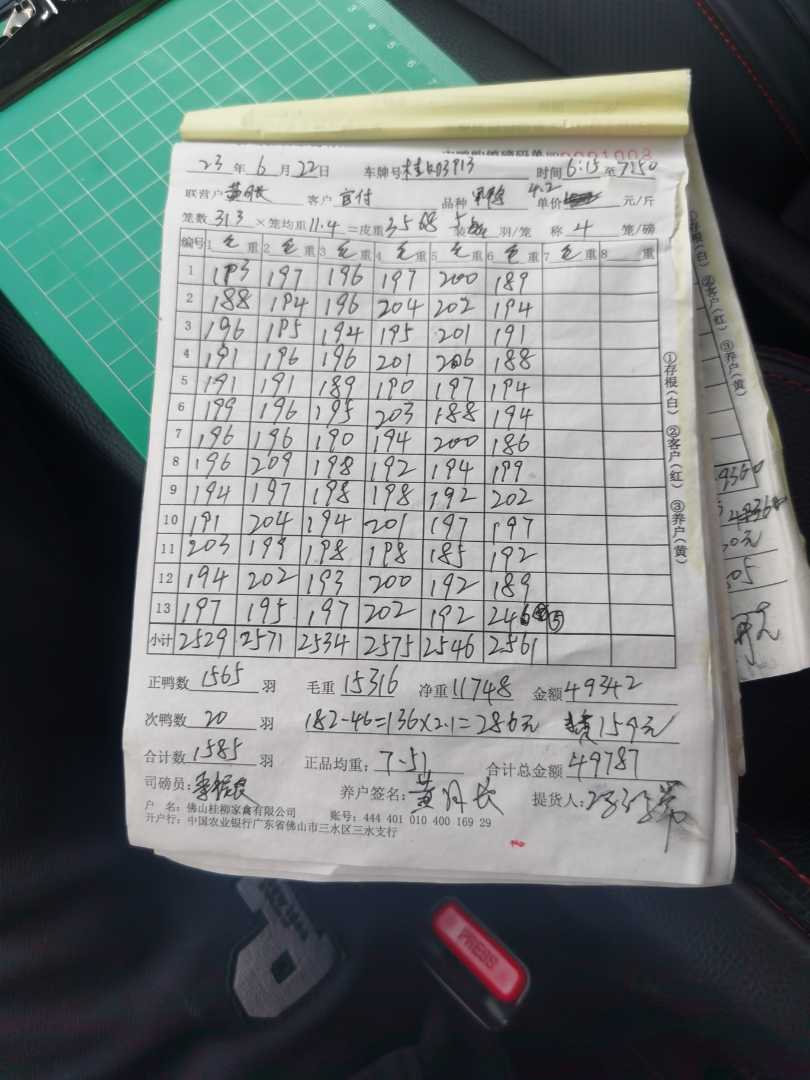 0091008
23 年 6 月 22 日 车牌号 桂K03913 时间 6:15 至 7:50
联营户 黄月长 客户 官付 品种 单价 4.2 元/斤
笼数 313 ×笼均重 11.4 =皮重 3568 装 5 羽/笼 称 4 笼/磅
编号 1 毛 重 2 毛 重 3 毛 重 4 毛 重 5 毛 重 6 毛 重 7 毛 重 8 重
1 193 197 196 197 200 189
2 188 194 196 204 202 194
3 196 195 194 195 201 191
4 191 196 196 201 206 188
5 191 191 189 190 197 194
6 199 196 195 203 188 194
7 196 196 190 194 200 186
8 196 209 198 192 194 199
9 194 197 198 198 192 202
10 191 204 194 201 197 197
11 203 199 198 198 185 192
12 194 202 193 200 192 189
13 197 195 197 202 192 246 ⑤
小计 2529 2571 2534 2575 2546 2561
正鸭数 1565 羽 毛重 15316 净重 11748 金额 49342
次鸭数 20 羽 182-46=136×2.1=286元 159元
合计数 1585 羽 正品均重: 7.51 合计总金额 49787
司磅员: 养户签名: 黄月长 提货人:
户 名: 佛山桂柳家禽有限公司 账号: 444 401 010 400 169 29
开户行: 中国农业银行广东省佛山市三水区三水支行
①存根(白) ②客户(红) ③养户(黄)
①存根(白) ②客户(红) ③养户(黄)
PRESS